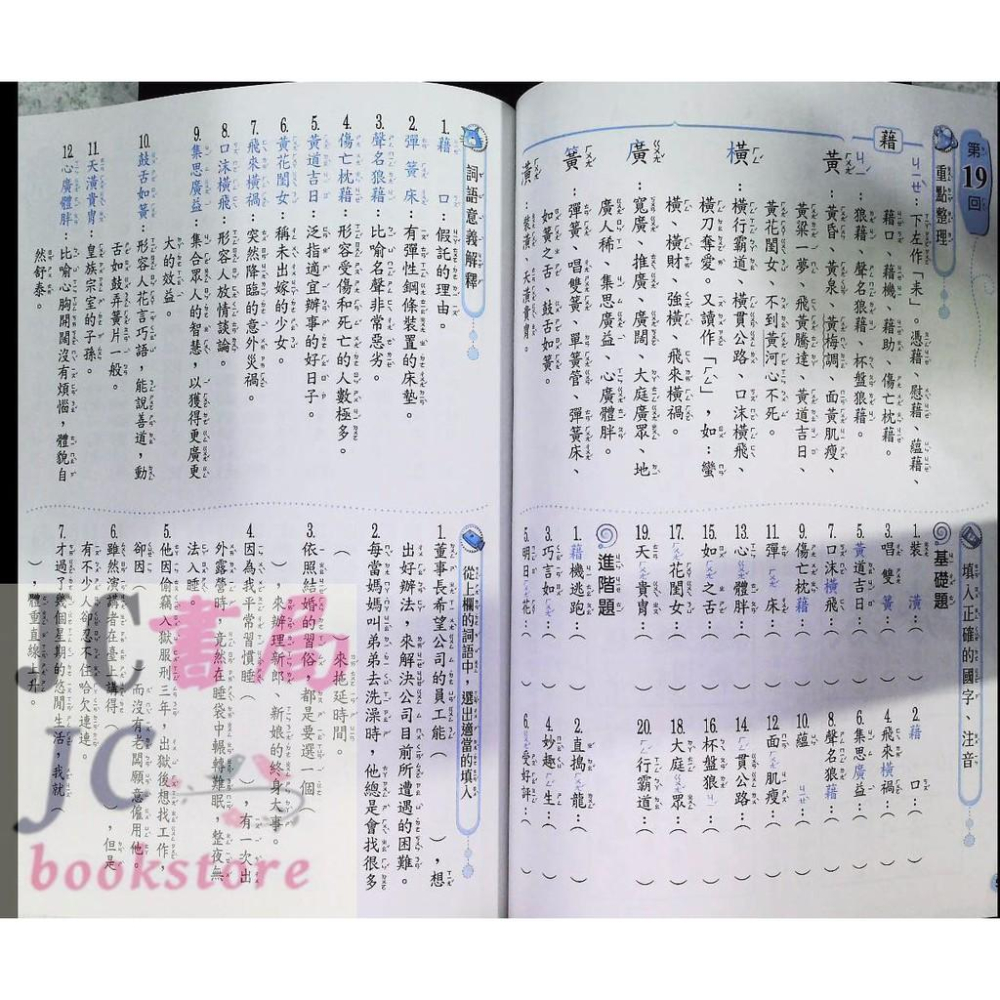 第19回
重點整理
藉
ㄐㄧㄝˋ：下左作「耒」。憑藉、慰藉、蘊藉、
藉口、藉機、藉助、傷亡枕藉。
ㄐㄧˊ：狼藉、聲名狼藉、杯盤狼藉。
黃ㄏㄨㄤˊ：黃昏、黃泉、黃梅調、面黃肌瘦、
黃粱一夢、飛黃騰達、黃道吉日、
黃花閨女、不到黃河心不死。
橫ㄏㄥˊ：橫行霸道、橫貫公路、口沫橫飛、
橫刀奪愛。又讀作「ㄏㄥˋ」，如：蠻
橫、橫財、強橫、飛來橫禍。
廣ㄍㄨㄤˇ：寬廣、推廣、廣闊、大庭廣眾、地
廣人稀、集思廣益、心廣體胖。
簧ㄏㄨㄤˊ：彈簧、唱雙簧、單簧管、彈簧床、
如簧之舌、鼓舌如簧。
潢ㄏㄨㄤˊ：裝潢、天潢貴胄。
填入正確的國字、注音
基礎題
1. 裝潢：（　）
2. 藉口：（　）
3. 唱雙簧：（　）
4. 飛來橫禍：（　）
5. 黃道吉日：（　）
6. 集思廣益：（　）
7. 口沫橫飛：（　）
8. 聲名狼藉：（　）
9. 傷亡枕藉：（　）
10. 蘊ㄐㄧㄝˋ：（　）
11. 彈ㄏㄨㄤˊ床：（　）
12. 面ㄏㄨㄤˊ肌瘦：（　）
13. 心ㄍㄨㄤˇ體胖：（　）
14. ㄏㄥˊ貫公路：（　）
15. 如ㄏㄨㄤˊ之舌：（　）
16. 杯盤狼ㄐㄧˊ：（　）
17. ㄏㄨㄤˊ花閨女：（　）
18. 大庭ㄍㄨㄤˇ眾：（　）
19. 天ㄏㄨㄤˊ貴胄：（　）
20. ㄏㄥˊ行霸道：（　）
進階題
1. 藉機逃跑：（　）
2. 直搗ㄏㄨㄤˊ龍：（　）
3. 巧言如ㄏㄨㄤˊ：（　）
4. 妙趣ㄏㄥˊ生：（　）
5. 明日ㄏㄨㄤˊ花：（
6. ㄍㄨㄤˇ受好評：（
詞語意義解釋
1. 藉口：假託的理由。
2. 彈簧床：有彈性鋼條裝置的床墊。
3. 聲名狼藉：比喻名聲非常惡劣。
4. 傷亡枕藉：形容受傷和死亡的人數極多。
5. 黃道吉日：泛指適宜辦事的好日子。
6. 黃花閨女：稱未出嫁的少女。
7. 飛來橫禍：突然降臨的意外災禍。
8. 口沫橫飛：形容人放情談論。
9. 集思廣益：集合眾人的智慧，以獲得更廣更
大的效益。
10. 鼓舌如簧：形容人花言巧語，能說善道，動
舌如鼓弄簧片一般。
11. 天潢貴胄：皇族宗室的子孫。
12. 心廣體胖：比喻心胸開闊沒有煩惱，體貌自
然舒泰。
從上欄的詞語中，選出適當的填入
1. 董事長希望公司的員工能（　），想
出好辦法，來解決公司目前所遭遇的困難。
2. 每當媽媽叫弟弟去洗澡時，他總是會找很多
（　）來拖延時間。
3. 依照結婚的習俗，都是要選一個
（　）來辦理新郎、新娘的終身大事。
4. 因為我平常習慣睡（　），有一次出
外露營時，竟然在睡袋中輾轉難眠，整夜無
法入睡。
5. 他因偷竊入獄服刑三年，出獄後想找工作，
卻因（　）而沒有老闆願意僱用他。
6. 雖然演講者在臺上講得（　），但是
有不少人卻忍不住哈欠連連。
7. 才過了幾個星期的悠閒生活，我就（
），體重直線上升。
JC書局
JC
bookstore